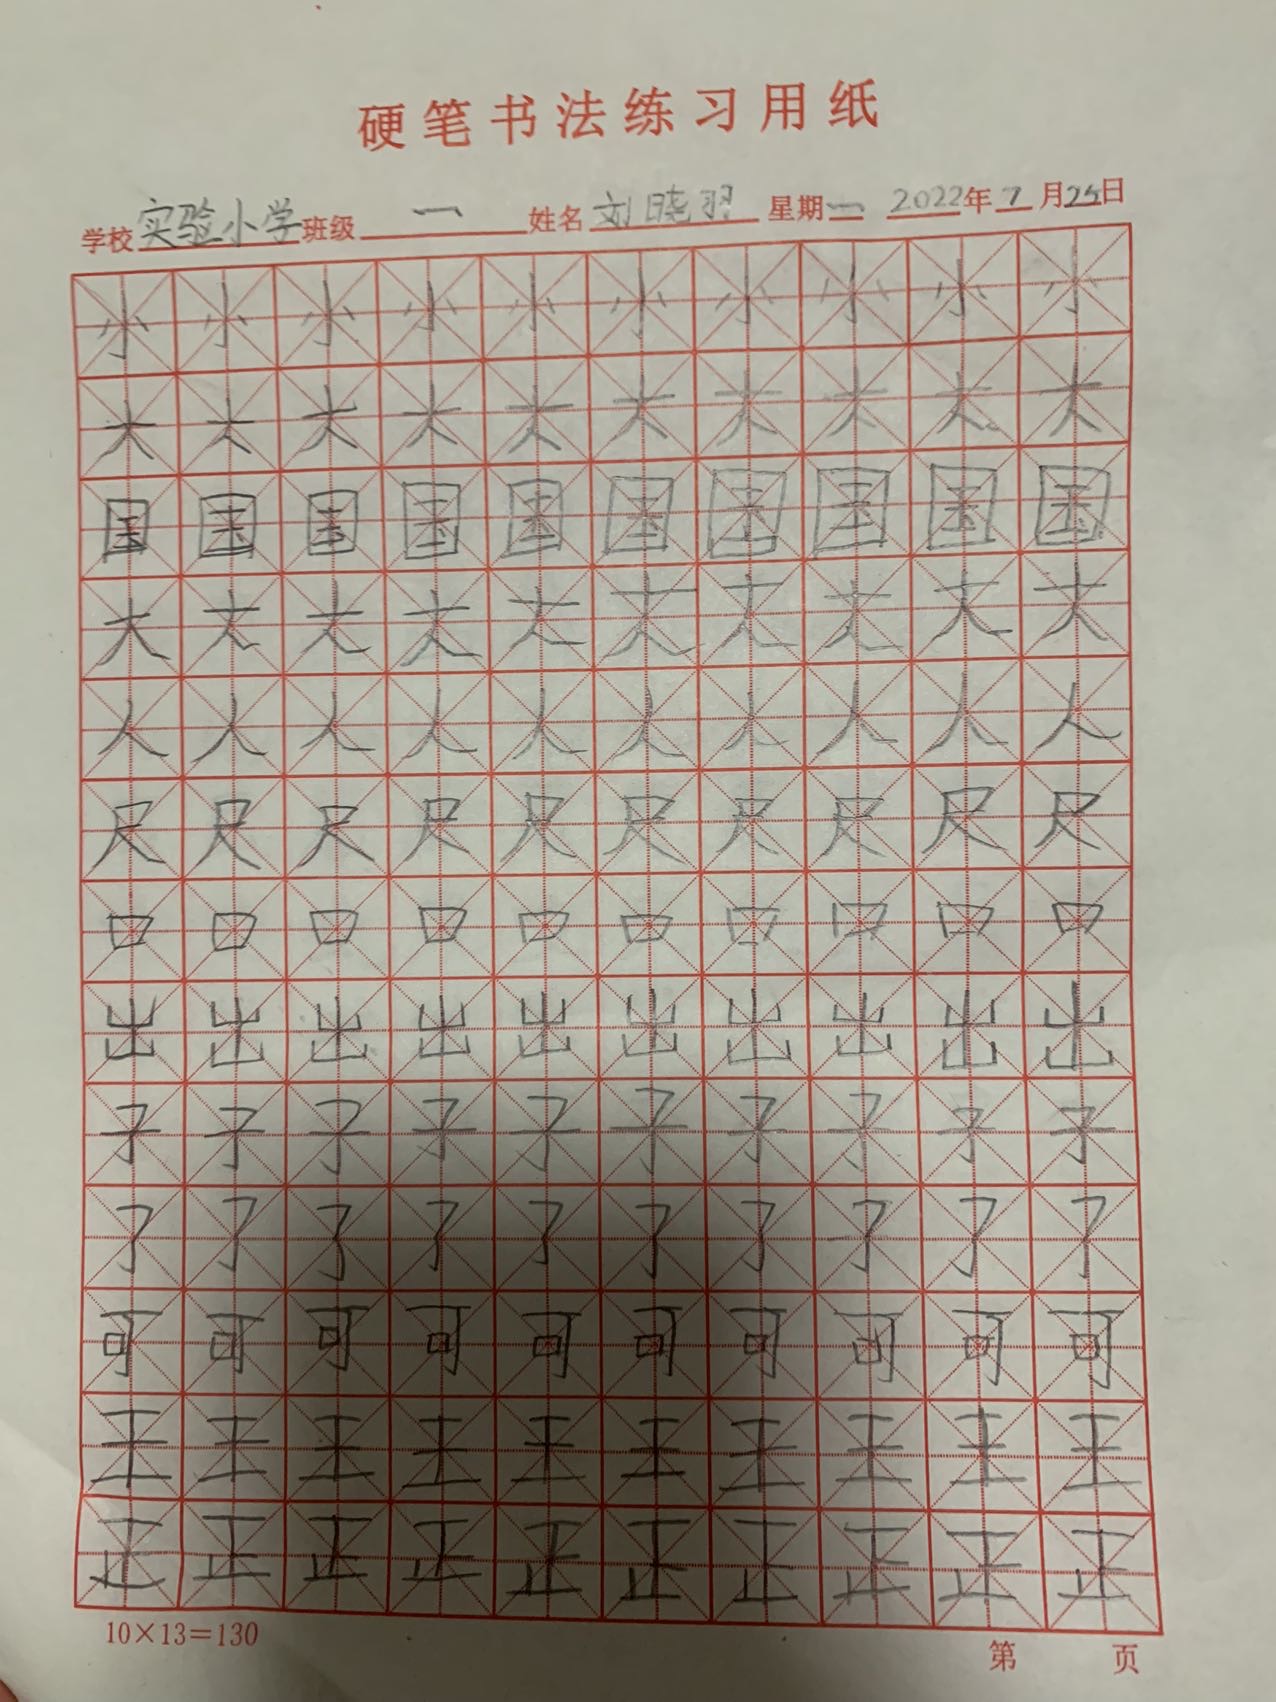 硬笔书法练习用纸
学校实验小学班级一姓名刘晓羽星期一2022年7月25日
小小小小小小小小小小
大大大大大大大大大大
国国国国国国国国国国
大大大大大大大大大大
人人人人人人人人人人
尺尺尺尺尺尺尺尺尺尺
口口口口口口口口口口
出出出出出出出出出出
子子子子子子子子子子
了了了了了了了了了了
可可可可可可可可可可
王王王王王王王王王王
正正正正正正正正正正
10×13=130
第 页